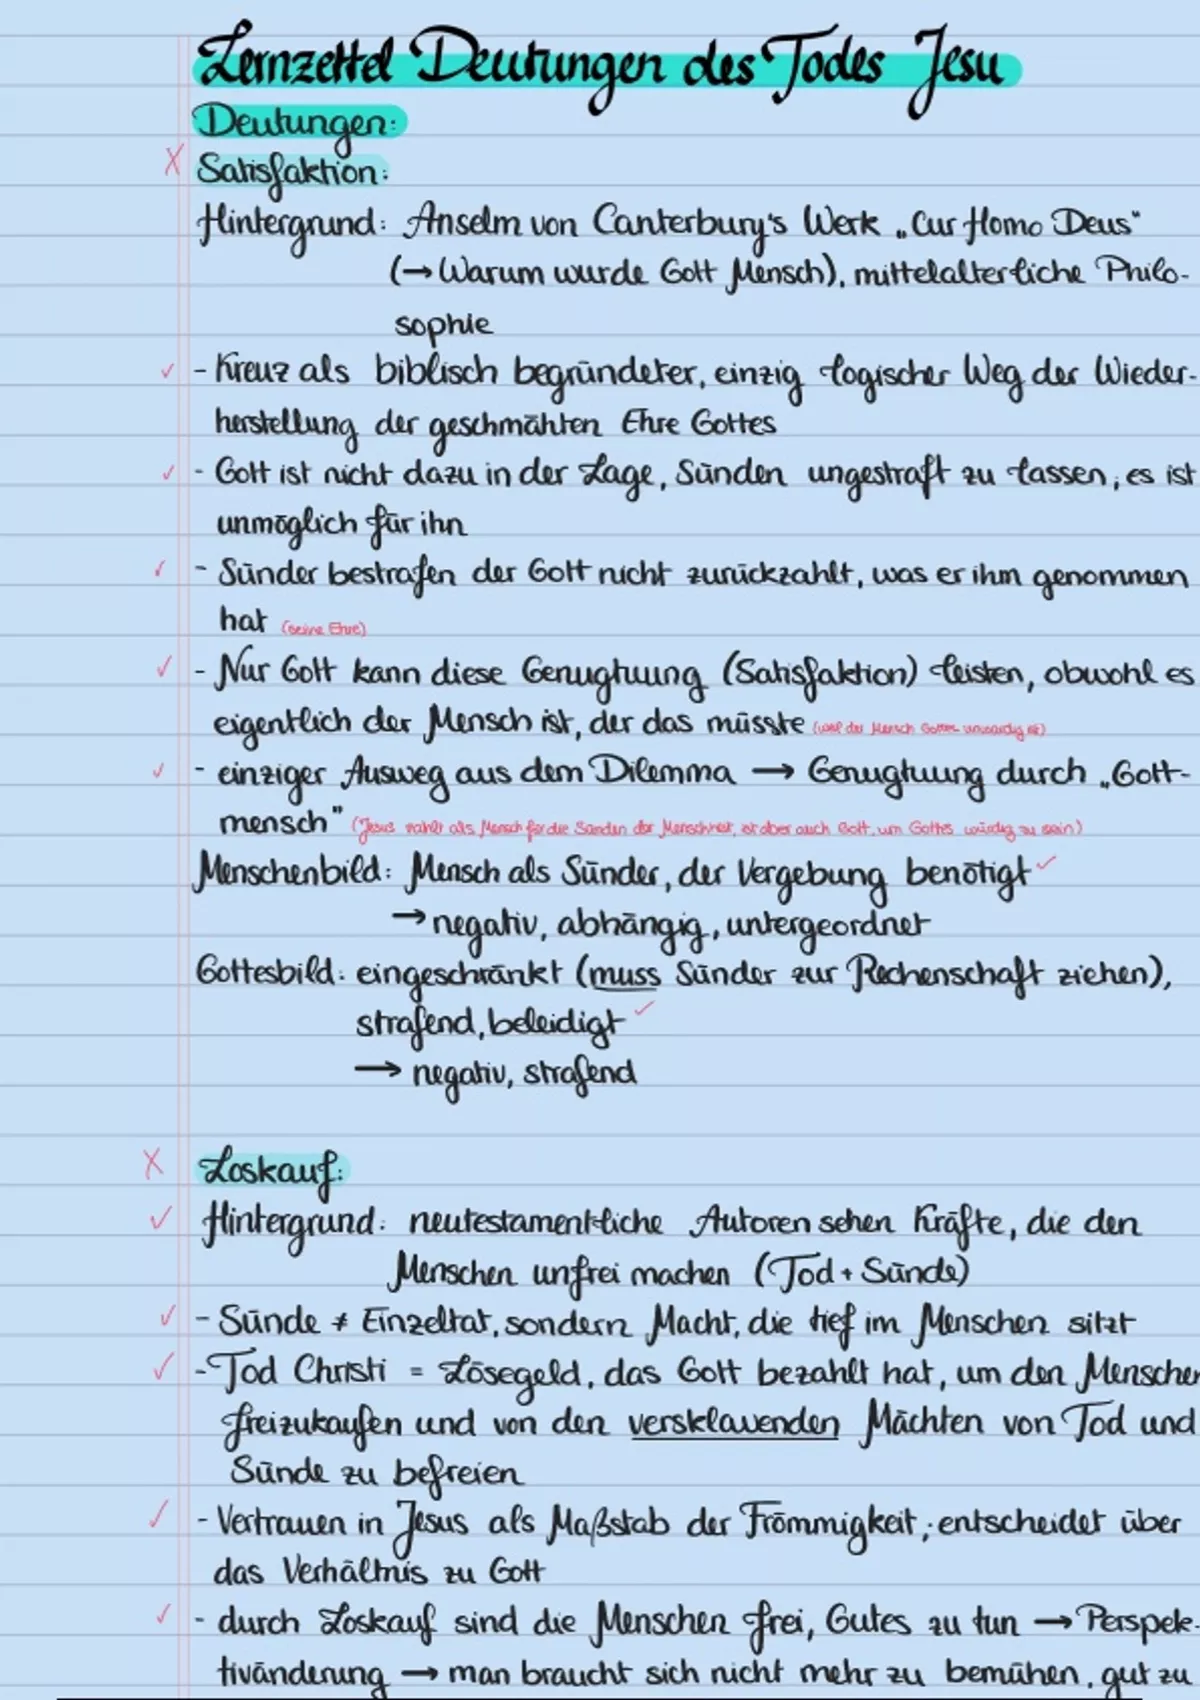 Lernzettel Deutungen des Todes Jesu
Deutungen:
X Satisfaktion:
Hintergrund: Anselm von Canterbury's Werk „Cur Homo Deus"
(→ Warum wurde Gott Mensch), mittelalterliche Philo-
sophie
✓ - Kreuz als biblisch begründeter, einzig logischer Weg der Wieder-
herstellung der geschmähten Ehre Gottes
✓ - Gott ist nicht dazu in der Lage, Sünden ungestraft zu lassen; es ist
unmöglich für ihn
✓ - Sünder bestrafen der Gott nicht zurückzahlt, was er ihm genommen
hat (seine Ehre)
✓ - Nur Gott kann diese Genugtuung (Satisfaktion) leisten, obwohl es
eigentlich der Mensch ist, der das müsste (weil der Mensch Gottes unwürdig ist)
✓ - einziger Ausweg aus dem Dilemma → Genugtuung durch „Gott-
mensch" (Jesus zahlt als Mensch für die Sünden der Menschheit, ist aber auch Gott, um Gottes würdig zu sein)
Menschenbild: Mensch als Sünder, der Vergebung benötigt ✓
→ negativ, abhängig, untergeordnet
Gottesbild: eingeschränkt (muss Sünder zur Rechenschaft ziehen),
strafend, beleidigt ✓
→ negativ, strafend
X Loskauf:
✓ Hintergrund: neutestamentliche Autoren sehen Kräfte, die den
Menschen unfrei machen (Tod + Sünde)
✓ - Sünde ≠ Einzeltat, sondern Macht, die tief im Menschen sitzt
✓ - Tod Christi = Lösegeld, das Gott bezahlt hat, um den Menschen
freizukaufen und von den versklavenden Mächten von Tod und
Sünde zu befreien
✓ - Vertrauen in Jesus als Maßstab der Frömmigkeit; entscheidet über
das Verhältnis zu Gott
✓ - durch Loskauf sind die Menschen frei, Gutes zu tun → Perspek-
tivänderung → man braucht sich nicht mehr zu bemühen, gut zu